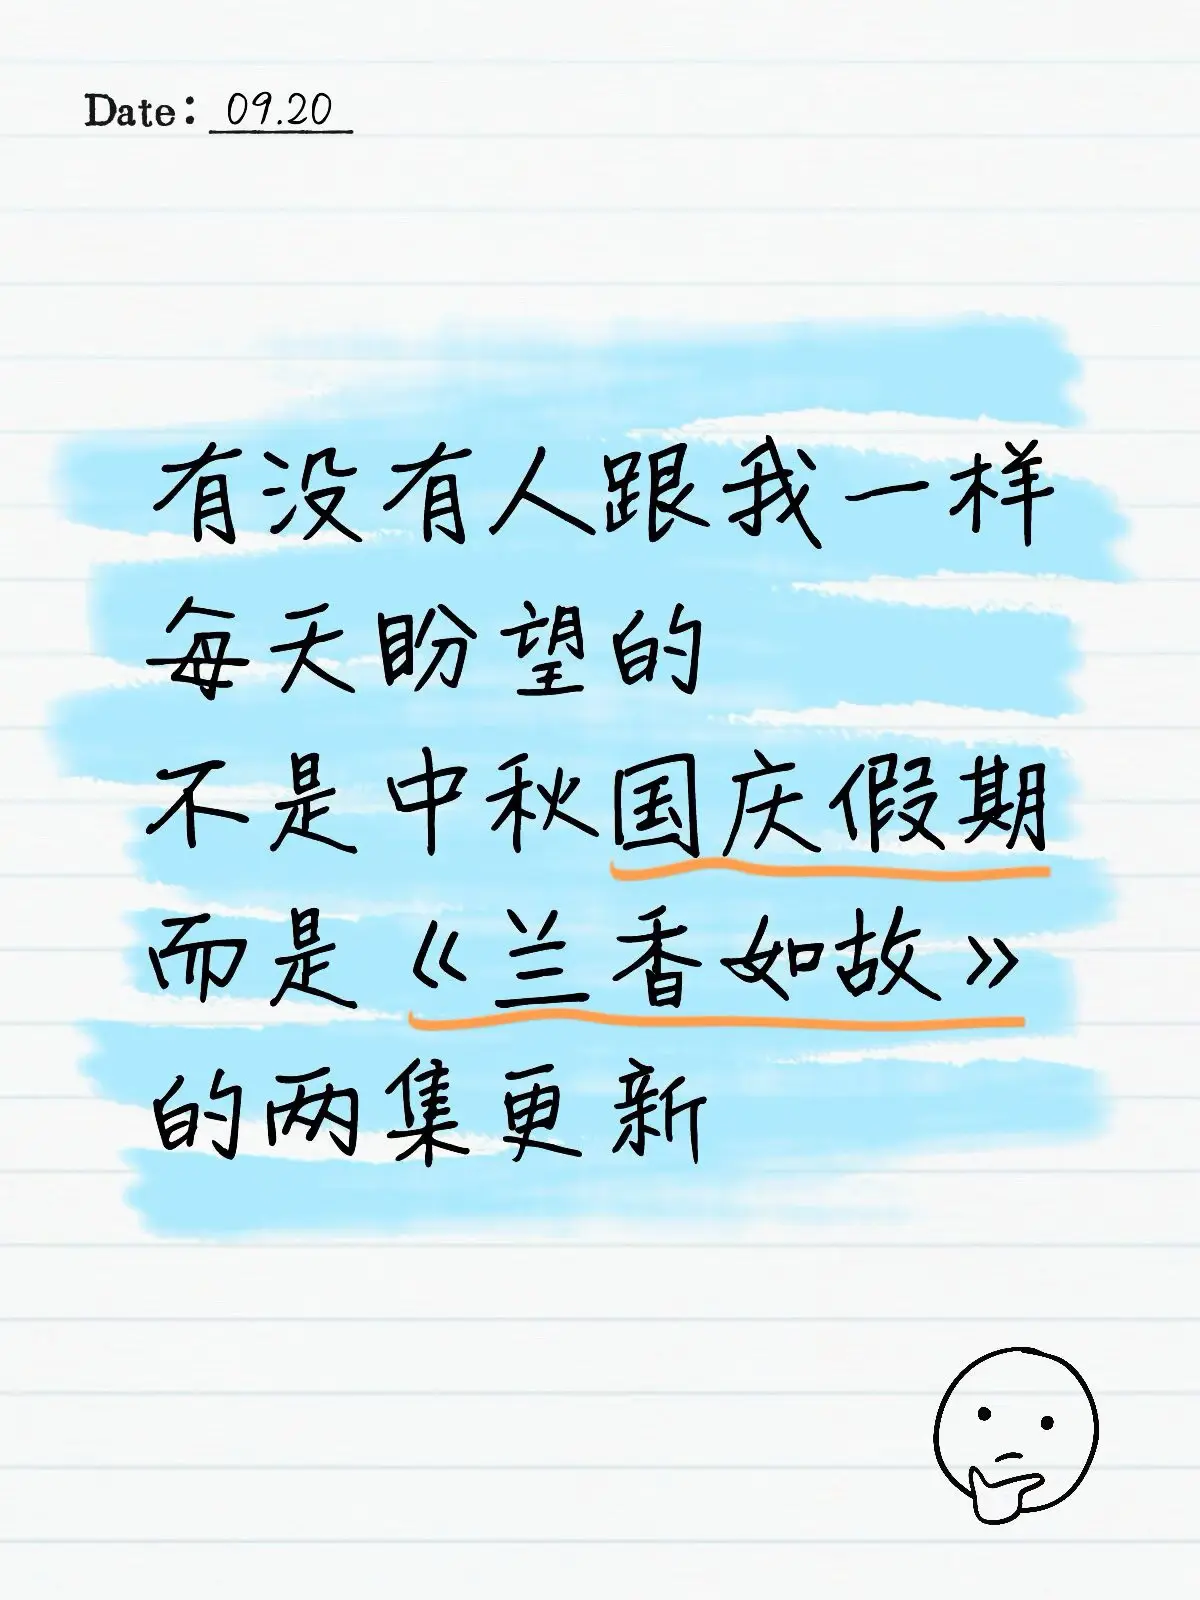 Date: 09.20
有没有人跟我一样
每天盼望的
不是中秋国庆假期
而是《兰香如故》
的两集更新